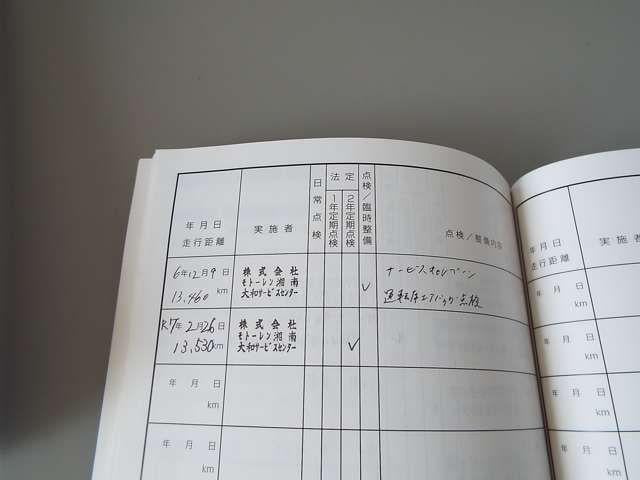 年月日
走行距離
実施者
日常点検
法定
1年定期点検
2年定期点検
点検/臨時整備
点検/整備内容
6年12月9日
13,460 km
株式会社
モトーレン湘南
大和サービスセンター
✓
サービスキャンペーン
運転席エアバッグ点検
R7年2月26日
13,530km
株式会社
モトーレン湘南
大和サービスセンター
✓
年 月 日
km
年 月 日
km
年月日
走行距離
実施者
年 月 日
km
年 月 日
km
年 月 日
km
年 月 日
km